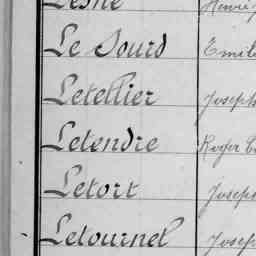 Lesne Henri
Le Sourd Emile
Letellier Joseph
Letendre Roger
Letort Joseph
Letournel Joseph